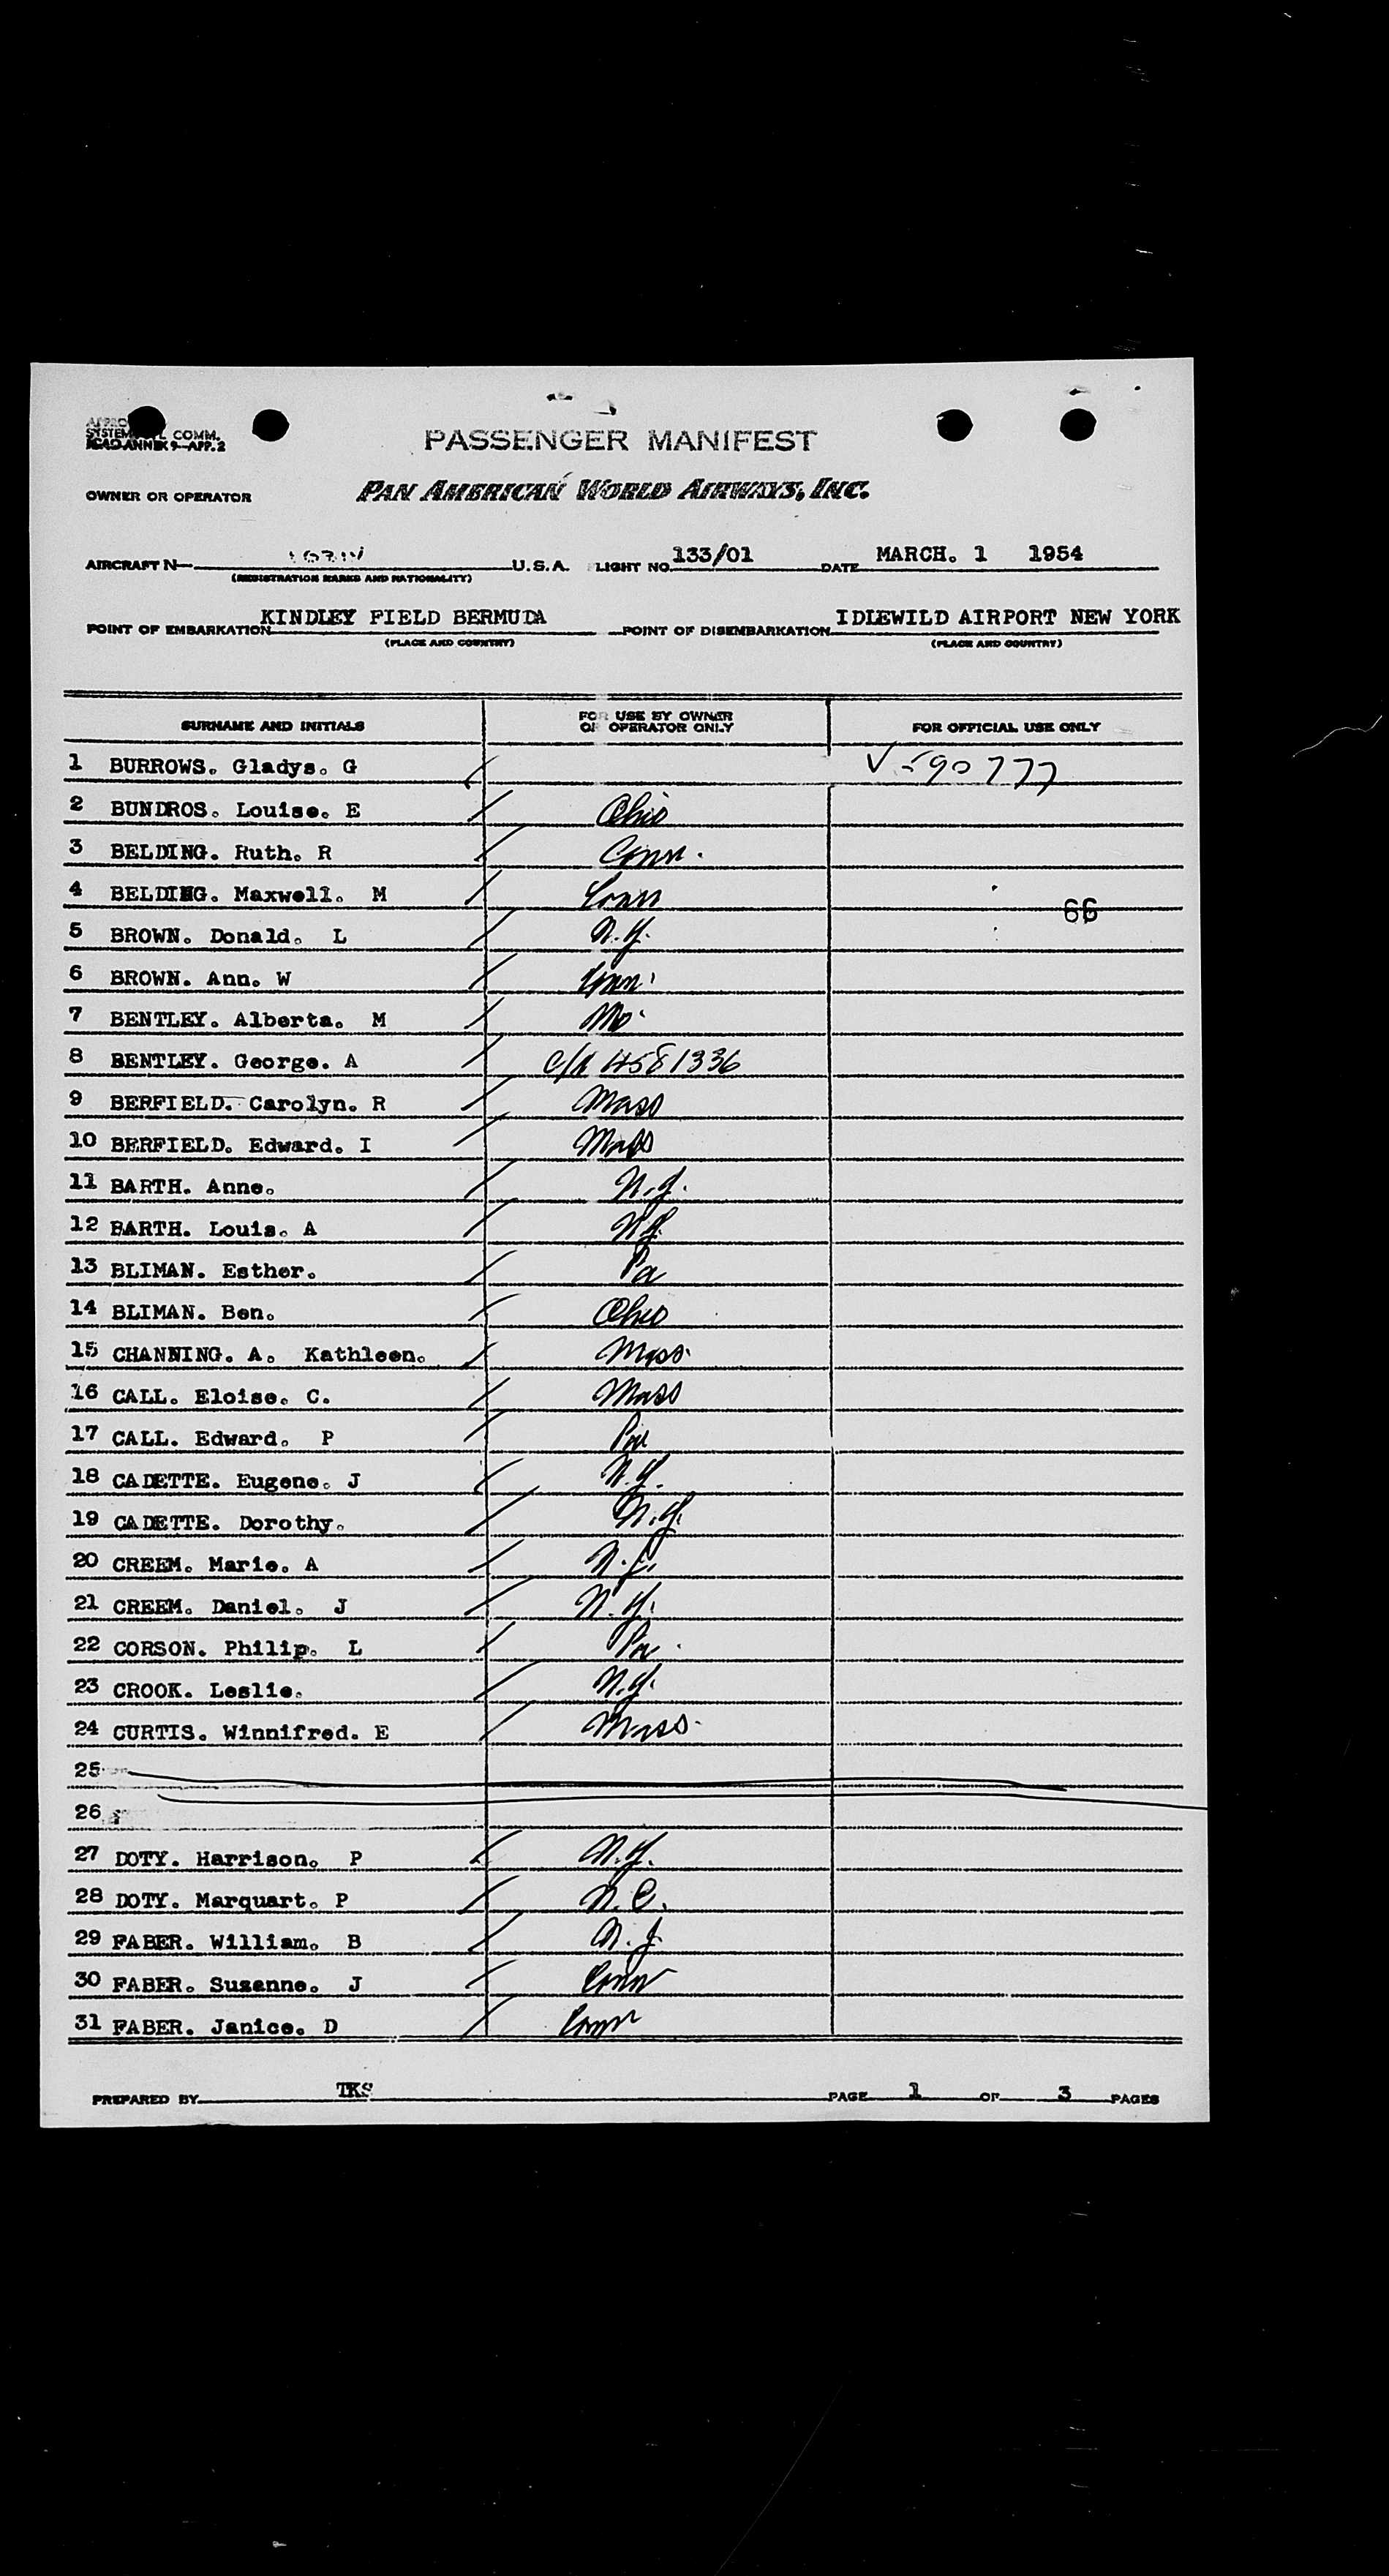 SYSTEM COMM.
ICAO ANNEX 9—APP. 2
PASSENGER MANIFEST
OWNER OR OPERATOR PAN AMERICAN WORLD AIRWAYS, INC.
AIRCRAFT N— U.S.A. FLIGHT NO. 133/01 DATE MARCH. 1 1954
(REGISTRATION MARKS AND NATIONALITY)
POINT OF EMBARKATION KINDLEY FIELD BERMUDA POINT OF DISEMBARKATION IDLEWILD AIRPORT NEW YORK
(PLACE AND COUNTRY) (PLACE AND COUNTRY)
SURNAME AND INITIALS FOR USE BY OWNER OR OPERATOR ONLY FOR OFFICIAL USE ONLY
1 BURROWS. Gladys. G V-590777
2 BUNDROS. Louise. E Ohio
3 BELDING. Ruth. R Conn.
4 BELDING. Maxwell. M Conn 66
5 BROWN. Donald. L N.Y.
6 BROWN. Ann. W Conn.
7 BENTLEY. Alberta. M Mo.
8 BENTLEY. George. A C/N 4581336
9 BERFIELD. Carolyn. R Mass
10 BERFIELD. Edward. I Mass
11 BARTH. Anne. N.J.
12 BARTH. Louis. A N.J.
13 BLIMAN. Esther. Pa
14 BLIMAN. Ben. Ohio
15 CHANNING. A. Kathleen. Mass.
16 CALL. Eloise. C. Mass
17 CALL. Edward. P Pa
18 CADETTE. Eugene. J N.Y.
19 CADETTE. Dorothy. N.Y.
20 CREEM. Marie. A
21 CREEM. Daniel. J N.Y.
22 CORSON. Philip. L Pa.
23 CROOK. Leslie. N.Y.
24 CURTIS. Winnifred. E Mass.
25
26
27 DOTY. Harrison. P N.Y.
28 DOTY. Marquart. P N.C.
29 FABER. William. B N.J.
30 FABER. Susanne. J Conn
31 FABER. Janice. D Conn
PREPARED BY TKS PAGE 1 OF 3 PAGES